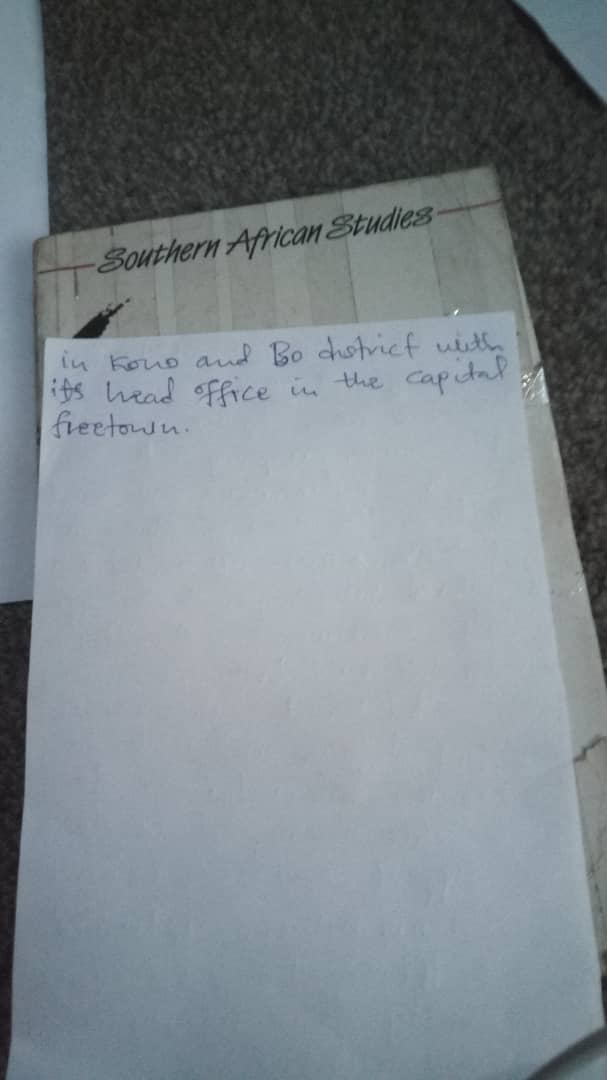 Southern African Studies
in Kono and Bo district with
its head office in the capital
freetown.